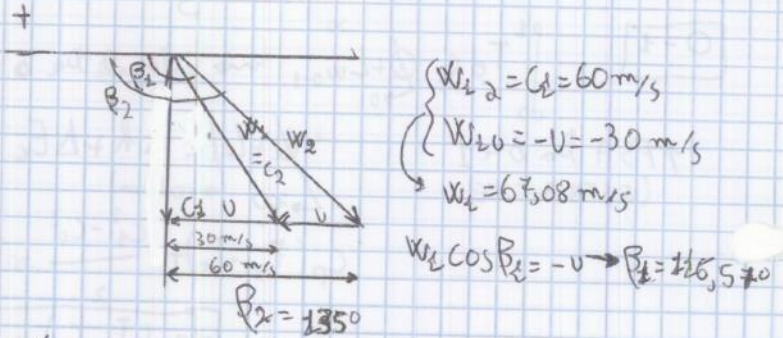 +
β1
β2
W1 = C2
W2
C1 U U
30 m/s
60 m/s
β2 = 135°
W1a = C1 = 60 m/s
W1u = -U = -30 m/s
W1 = 67,08 m/s
W1 cos β1 = -U → β1 = 116,57°